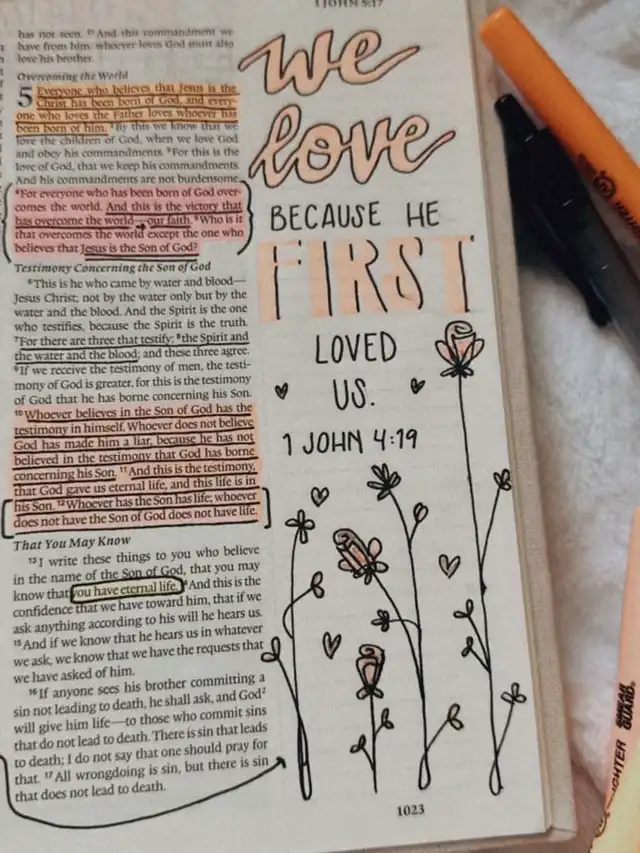 1 JOHN 5:17
has not seen. 21 And this commandment we
have from him: whoever loves God must also
love his brother.
Overcoming the World
5 Everyone who believes that Jesus is the
Christ has been born of God, and every-
one who loves the Father loves whoever has
been born of him. 2 By this we know that we
love the children of God, when we love God
and obey his commandments. 3 For this is the
love of God, that we keep his commandments.
And his commandments are not burdensome.
4 For everyone who has been born of God over-
comes the world. And this is the victory that
has overcome the world—our faith. 5 Who is it
that overcomes the world except the one who
believes that Jesus is the Son of God?
Testimony Concerning the Son of God
6 This is he who came by water and blood—
Jesus Christ; not by the water only but by the
water and the blood. And the Spirit is the one
who testifies, because the Spirit is the truth.
7 For there are three that testify: 8 the Spirit and
the water and the blood; and these three agree.
9 If we receive the testimony of men, the testi-
mony of God is greater, for this is the testimony
of God that he has borne concerning his Son.
10 Whoever believes in the Son of God has the
testimony in himself. Whoever does not believe
God has made him a liar, because he has not
believed in the testimony that God has borne
concerning his Son. 11 And this is the testimony,
that God gave us eternal life, and this life is in
his Son. 12 Whoever has the Son has life; whoever
does not have the Son of God does not have life.
That You May Know
13 I write these things to you who believe
in the name of the Son of God, that you may
know that you have eternal life. And this is the
confidence that we have toward him, that if we
ask anything according to his will he hears us.
15 And if we know that he hears us in whatever
we ask, we know that we have the requests that
we have asked of him.
16 If anyone sees his brother committing a
sin not leading to death, he shall ask, and God 2
will give him life—to those who commit sins
that do not lead to death. There is sin that leads
to death; I do not say that one should pray for
that. 17 All wrongdoing is sin, but there is sin
that does not lead to death.
we
love
BECAUSE HE
FIRST
LOVED
US.
1 JOHN 4:19
1023
SMEAR
GUARD